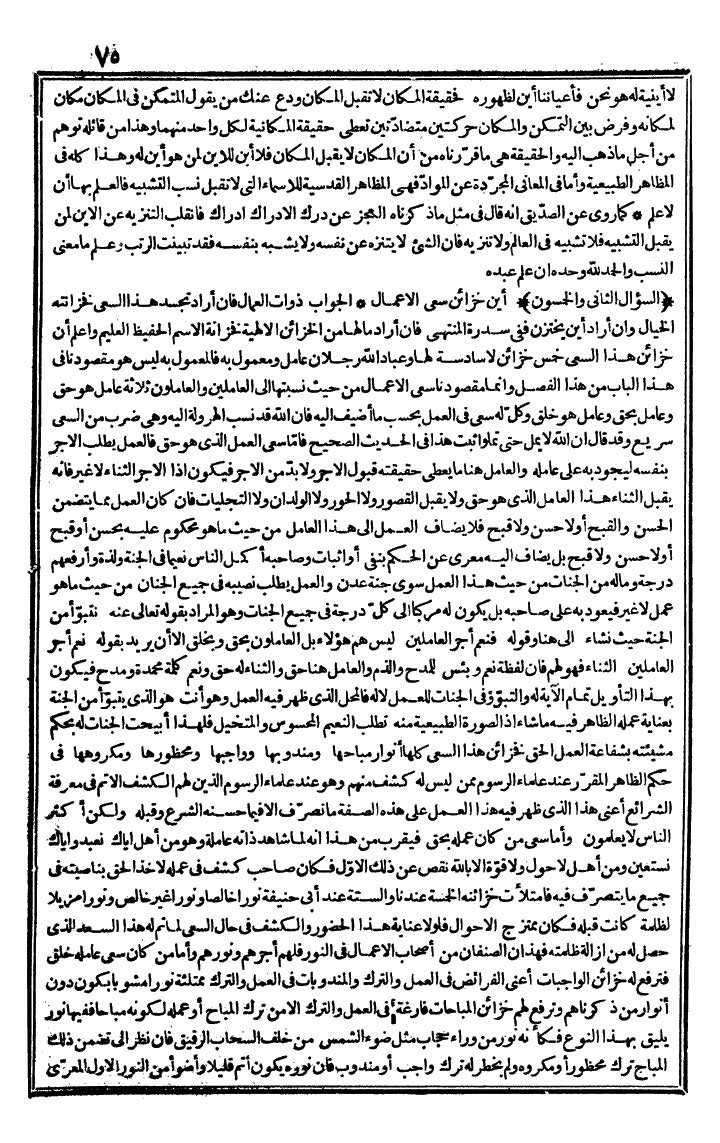 ٧٥
لا أينية له هو نحن فأعياننا أين لظهوره فحقيقة المكان لا تقبل المكان ودع عنك من يقول المتمكن فى المكان مكان
لمكانه وفرض بين التمكن والمكان حركتين متضادّتين تعطى حقيقة المكانية لكل واحد منهما وهذا من قائله توهم
من أجل ما ذهب اليه والحقيقة هى ما قرّرناه من أن المكان لا يقبل المكان فلا أين للاين لمن هو أين له وهذا كله فى
المظاهر الطبيعية وأما فى المعانى المجرّدة عن الموادّ فهى المظاهر القدسية للاسماء التى لا تقبل نسب التشبيه فالعلم بها أن
لا علم * كما روى عن الصدّيق انه قال فى مثل ما ذكرناه العجز عن درك الادراك ادراك فانقلب التنزيه عن الاين لمن
يقبل التشبيه فلا تشبيه فى العالم ولا تنزيه فان الشئ لا يتنزه عن نفسه ولا يشبه بنفسه فقد تبينت الرتب وعلم ما معنى
النسب والحمد لله وحده ان علم عبده
﴿السؤال الثانى والخمسون﴾ أين خزائن سعى الاعمال * الجواب ذوات العمال فان أراد تجسد هذا السعى فخزانته
الخيال وان أراد أين يختزن فنى سدرة المنتهى فان أراد ما لها من الخزائن الالهية فخزانة الاسم الحفيظ العليم واعلم أن
خزائن هذا السعى خمس خزائن لا سادسة لها وعباد الله رجلان عامل ومعمول به فالمعمول به ليس هو مقصودنا فى
هذا الباب من هذا الفصل وانما مقصودنا سعى الاعمال من حيث نسبتها الى العاملين والعاملون ثلاثة عامل هو حق
وعامل بحق وعامل هو خلق وكل له سعى فى العمل بحسب ما أضيف اليه فان الله قد نسب الهرولة اليه وهى ضرب من السعى
سريع وقد قال ان الله لا يمل حتى تملوا ثبت هذا فى الحديث الصحيح فاما سعى العمل الذى هو حق فالعمل يطلب الاجر
بنفسه ليجود به على عامله والعامل هنا ما يعطى حقيقته قبول الاجر ولا بدّ من الاجر فيكون اذا الاجر الثناء لا غير فانه
يقبل الثناء هذا العامل الذى هو حق ولا يقبل القصور ولا الحور ولا الولدان ولا التجليات فان كان العمل مما يتضمن
الحسن والقبح أو لا حسن ولا قبح فلا يضاف العمل الى هذا العامل من حيث ما هو محكوم عليه بحسن أو قبح
أو لا حسن ولا قبح بل يضاف اليه معرى عن الحكم بنفى أو اثبات وصاحبه أكمل الناس نعيما فى الجنة ولذة وأرفعهم
درجة وماله من الجنات من حيث هذا العمل سوى جنة عدن والعمل يطلب نصيبه فى جميع الجنان من حيث ما هو
عمل لا غير فيعود به على صاحبه بل يكون له مركبا الى كلّ درجة فى جميع الجنات وهو المراد بقوله تعالى عنه نتبوّأ من
الجنة حيث نشاء الى هنا وقوله فنعم أجر العاملين ليس هم هؤلاء بل العاملون بحق وبخلق الا أن يريد بقوله نعم أجر
العاملين الثناء فهو لهم فان لفظة نعم وبئس للمدح والذم والعامل هنا حق والثناء له حق ونعم كلمة محمدة ومدح فيكون
بهذا التأويل تمام الآية له والتبوّؤ فى الجنات للعمل لا له فالمحل الذى ظهر فيه العمل وهو أنت هو الذى يتبوّأ من الجنة
بعناية عمله الظاهر فيه ما شاء اذ الصورة الطبيعية منه تطلب النعيم المحسوس والمتخيل فلهذا أبيحت الجنات له بحكم
مشيئته بشفاعة العمل الحق فخزائن هذا السعى كلها أنوار مباحها ومندوبها وواجبها ومحظورها ومكروهها فى
حكم الظاهر المقرّر عند علماء الرسوم ممن ليس له كشف منهم وهو عند علماء الرسوم الذين لهم الكشف الاتم فى معرفة
الشرائع أعنى هذا الذى ظهر فيه هذا العمل على هذه الصفة ما تصرّف الا فيما حسنه الشرع وقبله ولكن أكثر
الناس لا يعلمون وأما سعى من كان عمله بحق فيقرب من هذا انه لما شاهد ذاته عاملة وهو من أهل اياك نعبد واياك
نستعين ومن أهل لا حول ولا قوة الا بالله نقص عن ذلك الاوّل فكان صاحب كشف فى عمله لاخذ الحق بناصيته فى
جميع ما يتصرّف فيه فامتلأت خزائنه الخمسة عندنا والستة عند أبى حنيفة نورا خالصا ونورا غير خالص ونورا مزيلا
لظلمة كانت قبله فكان ممتزج الاحوال فلولا عناية هذا الحضور والكشف فى حال السعى لما تم له هذا السعد الذى
حصل له من ازالة ظلمته فهذان الصنفان من أصحاب الاعمال فى النور فلهم أجرهم ونورهم وأما من كان سعى عامله خلق
فترفع له خزائن الواجبات أعنى الفرائض فى العمل والترك والمندوبات فى العمل والترك ممتلئة نورا مشوبا يكون دون
أنوار من ذكرناهم وترفع لهم خزائن المباحات فارغة فى العمل والترك الا من ترك المباح أو عمله لكونه مباحا ففيها نور
يليق بهذا النوع فكأنه نور من وراء حجاب مثل ضوء الشمس من خلف السحاب الرقيق فان نظر الى تضمن ذلك
المباح ترك محظور أو مكروه ولم يخطر له ترك واجب أو مندوب فان نوره يكون أتم قليلا وأضوأ من النور الاول المعرّى